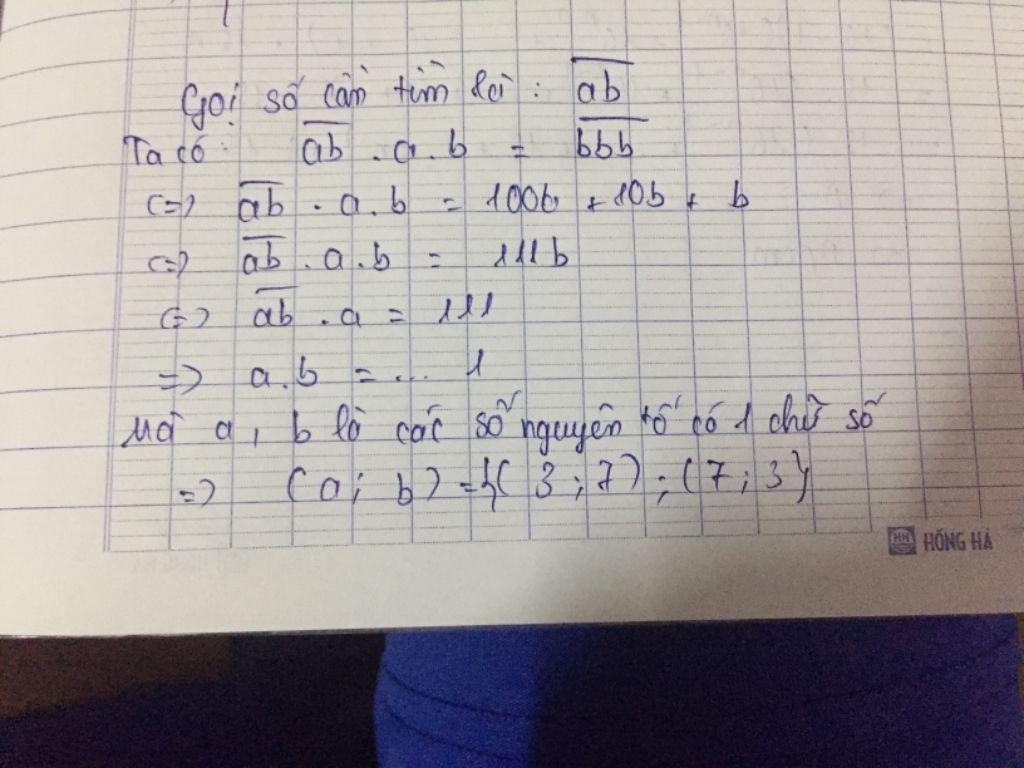 Gọi số cần tìm là : ab
Ta có : ab . a . b = bbb
<=> ab . a . b = 100b + 10b + b
<=> ab . a . b = 111b
<=> ab . a = 111
=> a . b = ... 1
Mà a, b là các số nguyên tố có 1 chữ số
=> (a ; b) = {( 3 ; 7) ; (7 ; 3}
HH HỒNG HÀ